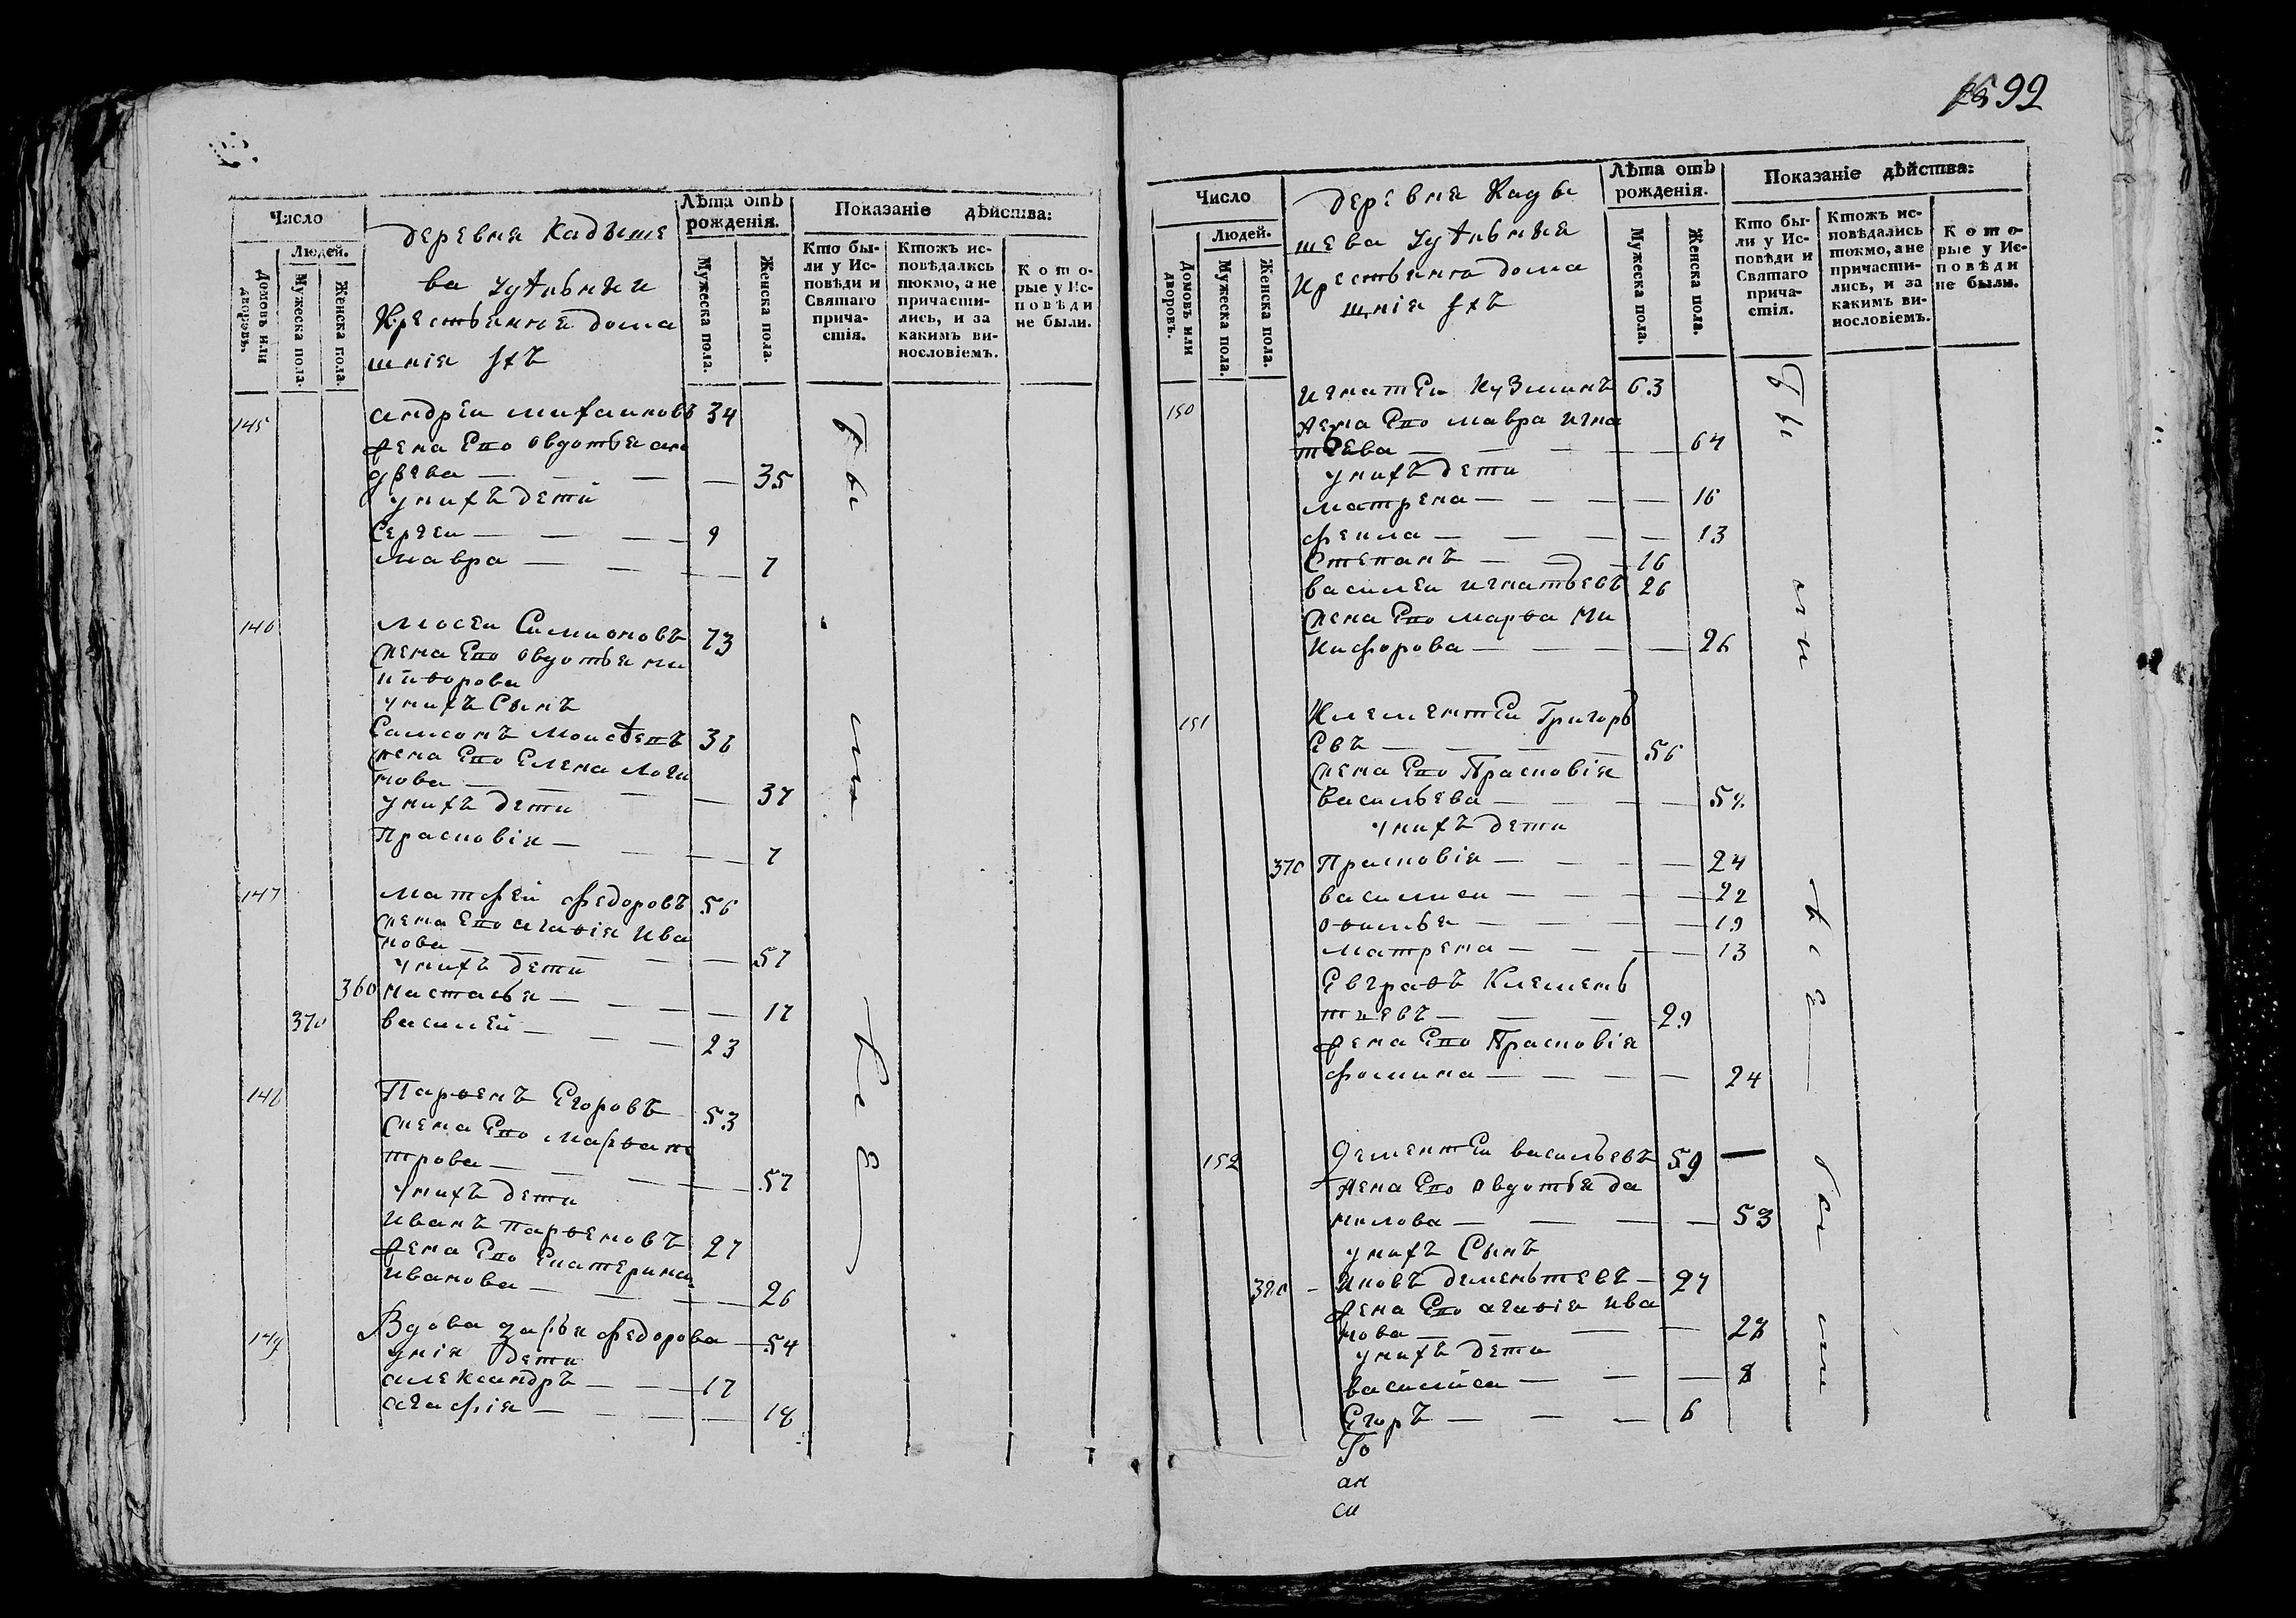 99
Число
Людей.
Домовъ или дворовъ.
Мужеска пола.
Женска пола.
деревня Кадыше
ва
Крестьянне дома
шнія ихъ
Лѣта отъ рожденія.
Мужеска пола.
Женска пола.
Показаніе дѣйства:
Кто бы-
ли у Ис-
повѣди и
Святаго
прича-
стія.
Ктожъ ис-
повѣдались
токмо, а не
причасти-
лись, и за
какимъ ви-
нословіемъ.
Кото-
рые у Ис-
повѣди
не были.
145 андреи михаиловъ 34
жена Его овдотья ан
древа — — — — 35
унихъ дети
Сергеи — — — 9
мавра — — — — 7
146 мосеи Симионовъ 73
жена Его овдотья ни
киѳорова
унихъ Сынъ
Самсонъ 36
жена Его Елена логи
нова — — — — 37
унихъ дети
Прасковія — — — — 7
147 матфей федоровъ 56
жена Его агаѳія Ива
нова — — — — 57
унихъ дети
360 настасья — — — — 17
370 василей — — — 23
148 Парѳенъ Егоровъ 53
жена Его Марѳа пе
трова — — — — 57
унихъ дети
Иванъ парѳеновъ 27
жена Его Екатерина
Иванова — — — — 26
149 Вдова дарья федорова — 54
унія дети
александръ — — — 17
агафія — — — — 18
бы
ли
всѣ
Число
Людей.
Домовъ или дворовъ.
Мужеска пола.
Женска пола.
деревня Кады
шева
Крестьянѣ дома
шнія ихъ
Лѣта отъ рожденія.
Мужеска пола.
Женска пола.
Показаніе дѣйства:
Кто бы-
ли у Ис-
повѣди и
Святаго
прича-
стія.
Ктожъ ис-
повѣдались
токмо, а не
причасти-
лись, и за
какимъ ви-
нословіемъ.
Кото-
рые у Ис-
повѣди
не были.
150 игнатеи Кузминъ 63
жена Его мавра игна
тьева — — — — 64
унихъ дети
матрена — — — — 16
фекла — — — — 13
Степанъ — — — 16
василеи игнатьевъ 26
жена Его марѳа ни
кифорова — — — — 26
151 Клементеи Григорь
Евъ — — — 56
жена Его Прасковія
васильева — — — — 52
унихъ дети
370 Прасковія — — — — 24
василиса — — — — 22
— — — — 19
матрена — — — — 13
Евграѳъ Клемень
тиевъ — — — 29
жена Его Прасковія
фомина — — — — 24
152 Дементеи васильевъ 59 —
жена Его овдотья да
нилова — — — — 53
унихъ Сынъ
Яковъ дементьевъ — 27
жена Его агаѳія ива
нова — — — — 27
унихъ дети
василиса — — — — 8
Егоръ — — — 6
Го
ан
си
бы
ли
всѣ
бы
ли